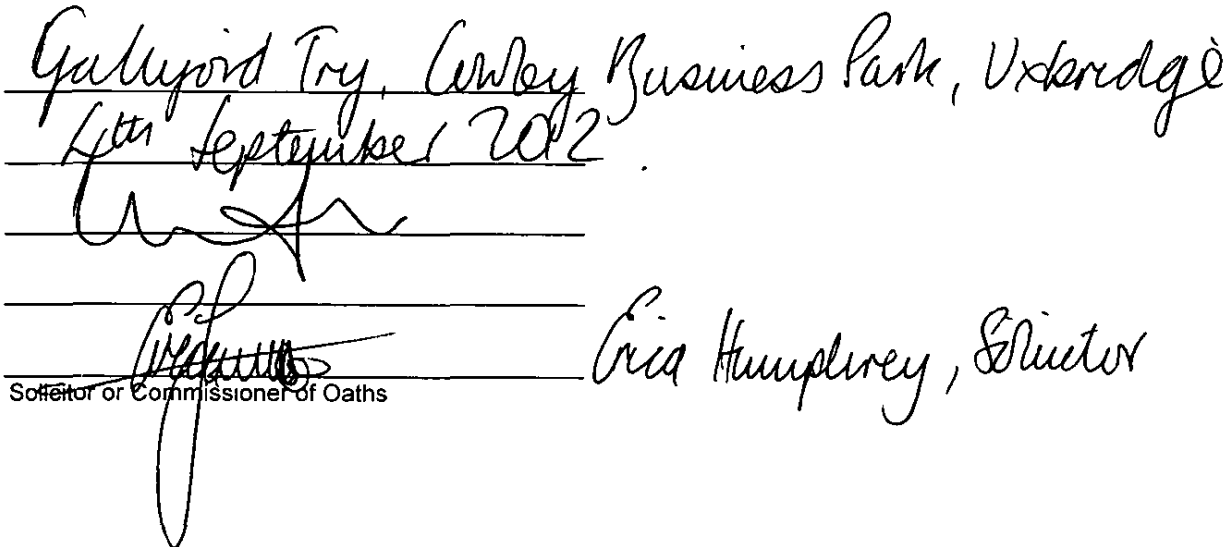 Galliford Try, Cowley Business Park, Uxbridge
4th September 2012.
Erica Humphrey, Solicitor
Solicitor or Commissioner of Oaths